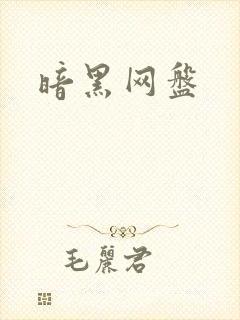 暗黑网盘
毛麗君